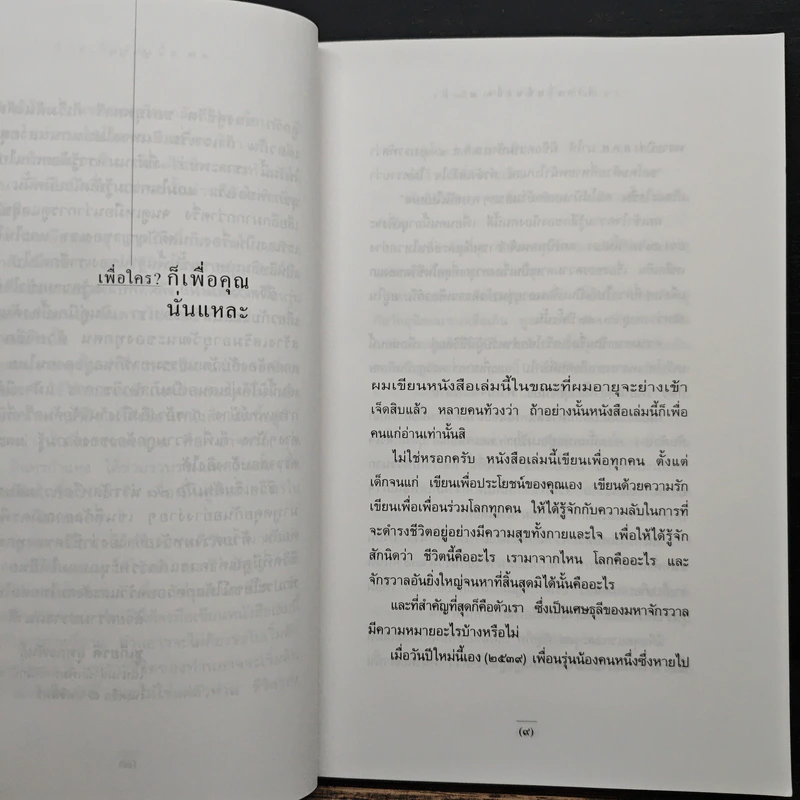 เพื่อใคร? ก็เพื่อคุณ
นั่นแหละ
ผมเขียนหนังสือเล่มนี้ในขณะที่ผมอายุจะย่างเข้า
เจ็ดสิบแล้ว หลายคนท้วงว่า ถ้าอย่างนั้นหนังสือเล่มนี้ก็เพื่อ
คนแก่อ่านเท่านั้นสิ
ไม่ใช่หรอกครับ หนังสือเล่มนี้เขียนเพื่อทุกคน ตั้งแต่
เด็กจนแก่ เขียนเพื่อประโยชน์ของคุณเอง เขียนด้วยความรัก
เขียนเพื่อเพื่อนร่วมโลกทุกคน ให้ได้รู้จักกับความลับในการที่
จะดำรงชีวิตอยู่อย่างมีความสุขทั้งกายและใจ เพื่อให้ได้รู้จัก
สักนิดว่า ชีวิตนี้คืออะไร เรามาจากไหน โลกคืออะไร และ
จักรวาลอันยิ่งใหญ่จนหาที่สิ้นสุดมิได้นั้นคืออะไร
และที่สำคัญที่สุดก็คือตัวเรา ซึ่งเป็นเศษธุลีของมหาจักรวาล
มีความหมายอะไรบ้างหรือไม่
เมื่อวันปีใหม่นี้เอง (๒๕๓๙) เพื่อนรุ่นน้องคนหนึ่งซึ่งหายไป
(๙)